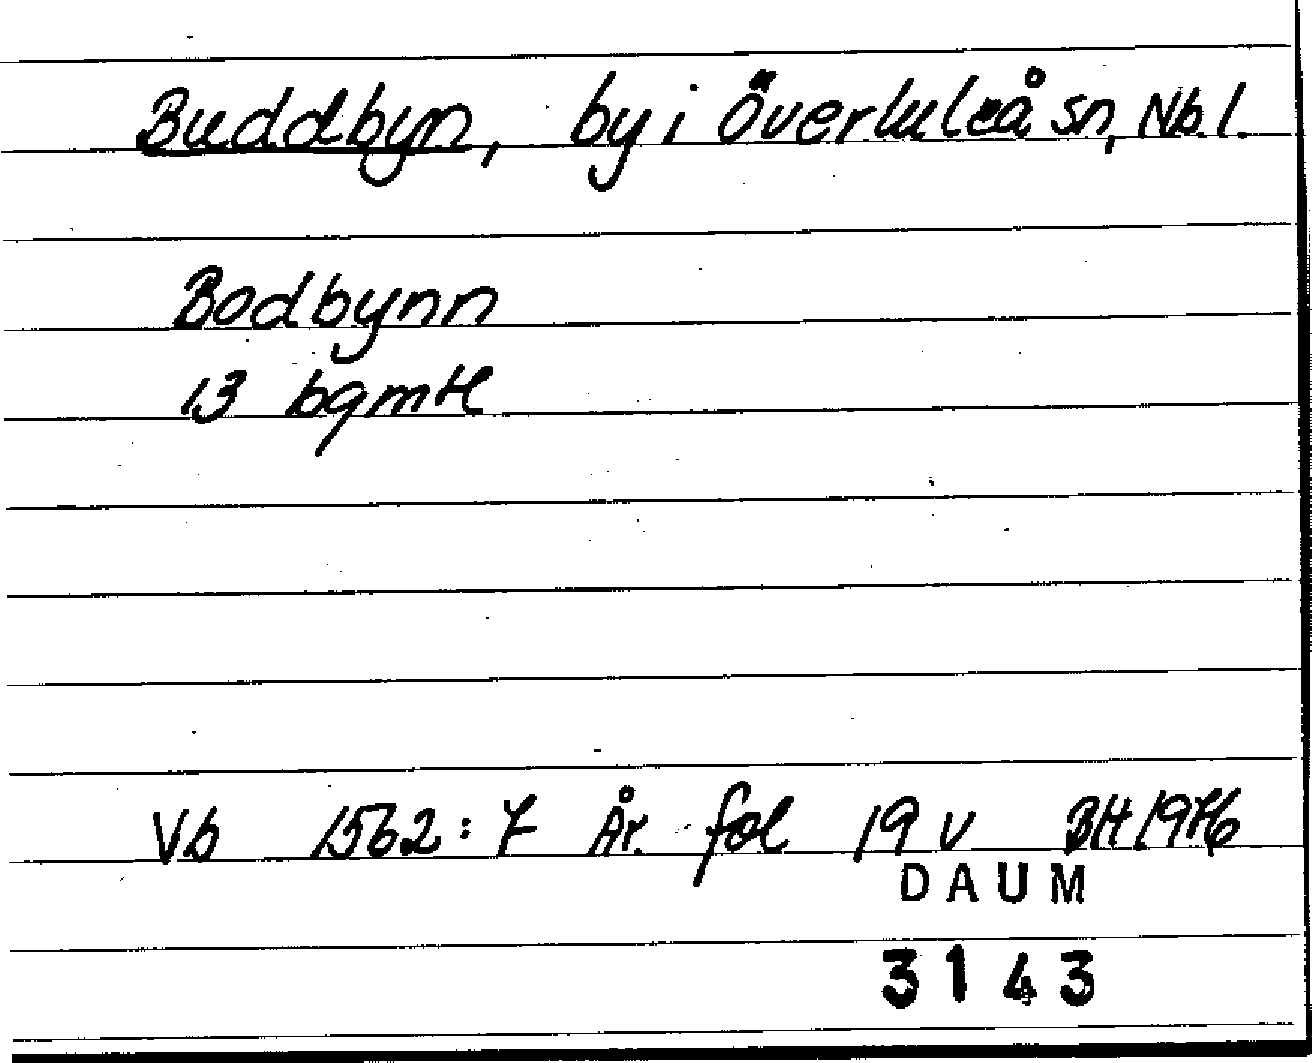 Buddbyn, by i Överluleå sn, Nb.l.
Bodbynn
13 bgmtl
Vb 1562:7 År. fol 19 v BH 1976
DAUM
3143